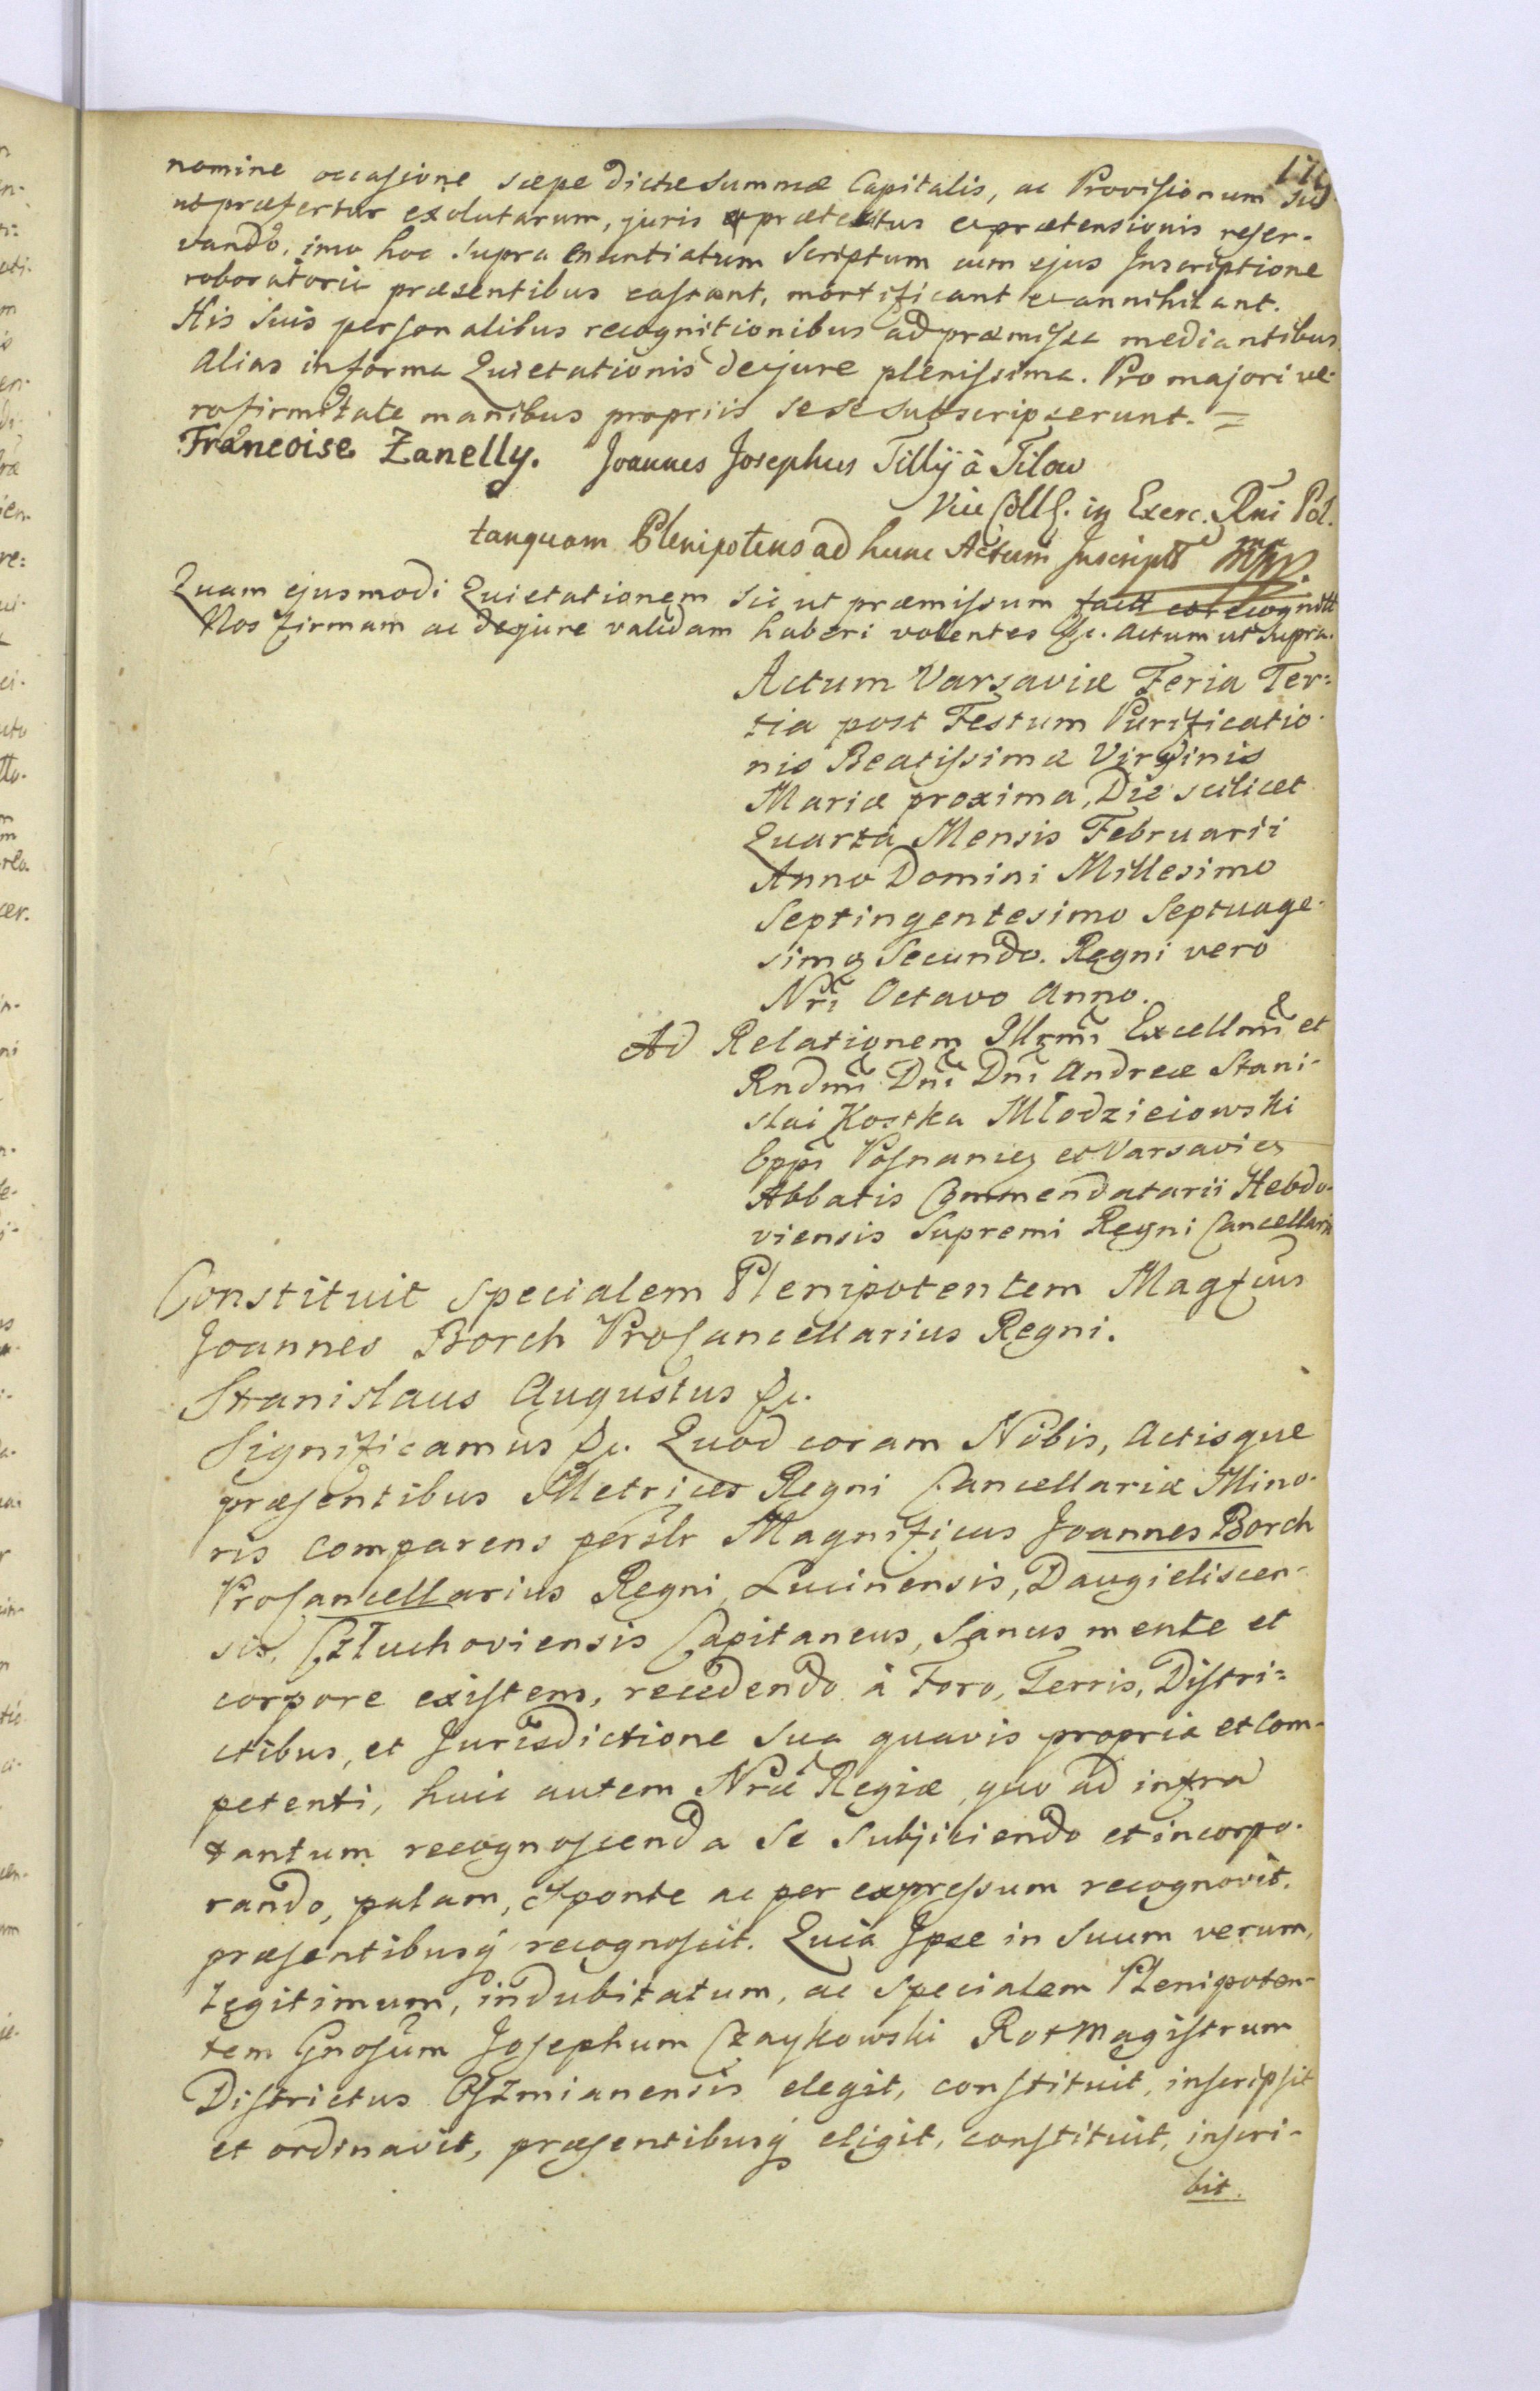 nomine occasione sæpe dictæ summæ Capitalis, ac Provisionum sic
ut præfertur exolutarum, juris prætextus et prætensionis reser-
vando, imo hoc supra enuntiatum Scriptum cum ejus Inscriptione
roboratoria præsentibus cassant, mortificant et annihilant.
His suis personalibus recognitionibus ad præmissa mediantibus
alias in forma Quietationis de jure plenissima. Pro majori ve-
ro firmitate manibus propriis sese subscripserunt. =
Francoise Zanelly. Joannes Josephus Tillÿ â Tilow
Vice Coll. in Exerc. Rni Pol.
tanquam Plenipotens ad hunc Actum Inscript mpp.
Quam ejusmodi Quietationem sic ut præmissum factt et recognitt
Nos firmam ac de jure validam haberi volentes &c. Actum ut supra.
Actum Varsaviæ Feria Ter:
tia post Festum Purificatio-
nis Beatissimæ Virginis
Mariæ proxima, Die scilicet
Quarta Mensis Februarii
Anno Domini Millesimo
Septingentesimo Septuage-
simo Secundo. Regni vero
Nri Octavo Anno.
Ad Relationem Illrmi Excellmi et
Rndmi Dni Dni Andreæ Stani-
slai Kostka Młodzieiowski
Eppi Posnanien et Varsavien
Abbatis Commendatarii Hebdo-
viensis Supremi Regni Cancellarii
Constituit specialem Plenipotentem Magfcus
Joannes Borch ProCancellarius Regni.
Stanislaus Augustus &c.
Significamus &c. Quod coram Nobis, Actisque
præsentibus Metrices Regni Cancellariæ Mino-
ris comparens persolr Magnificus Joannes Borch
ProCancellarius Regni, Lucinensis, Daugieliscen-
sis, Człuchoviensis Capitaneus, sanus mente et
corpore existens, recedendo à Foro, Terris, Distri:
ctibus, et Jurisdictione sua quavis propria et Com-
petenti, huic autem Nræ Regiæ, quo ad infra
tantum recognoscenda se subjiciendo et incorpo-
rando, palam, sponte ac per expressum recognovit,
præsentibusq recognoscit. Quia Ipse in suum verum,
Legitimum, indubitatum, ac specialem Plenipoten-
tem Gnosum Josephum Czaykowski Rotmagistrum
Districtus Oszmianensis elegit, constituit, inscripsit
et ordinavit, præsentibusq eligit, constituit, inscri-
bit.